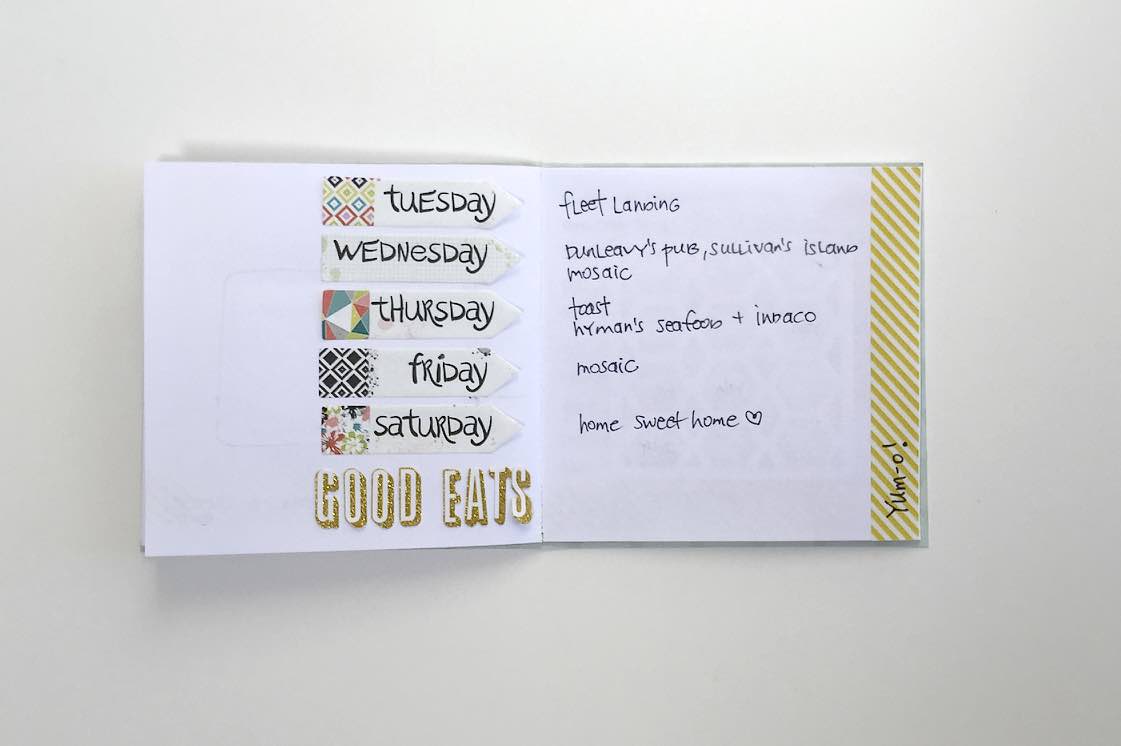 tuesday
WEDNesday
tHuRsday
fRiday
satuRday
GOOD EATS
fleet Landing
Dunleavy's pub, Sullivan's Island
mosaic
toast
hyman's seafood + indaco
mosaic
home sweet home ♡
Yum-o!